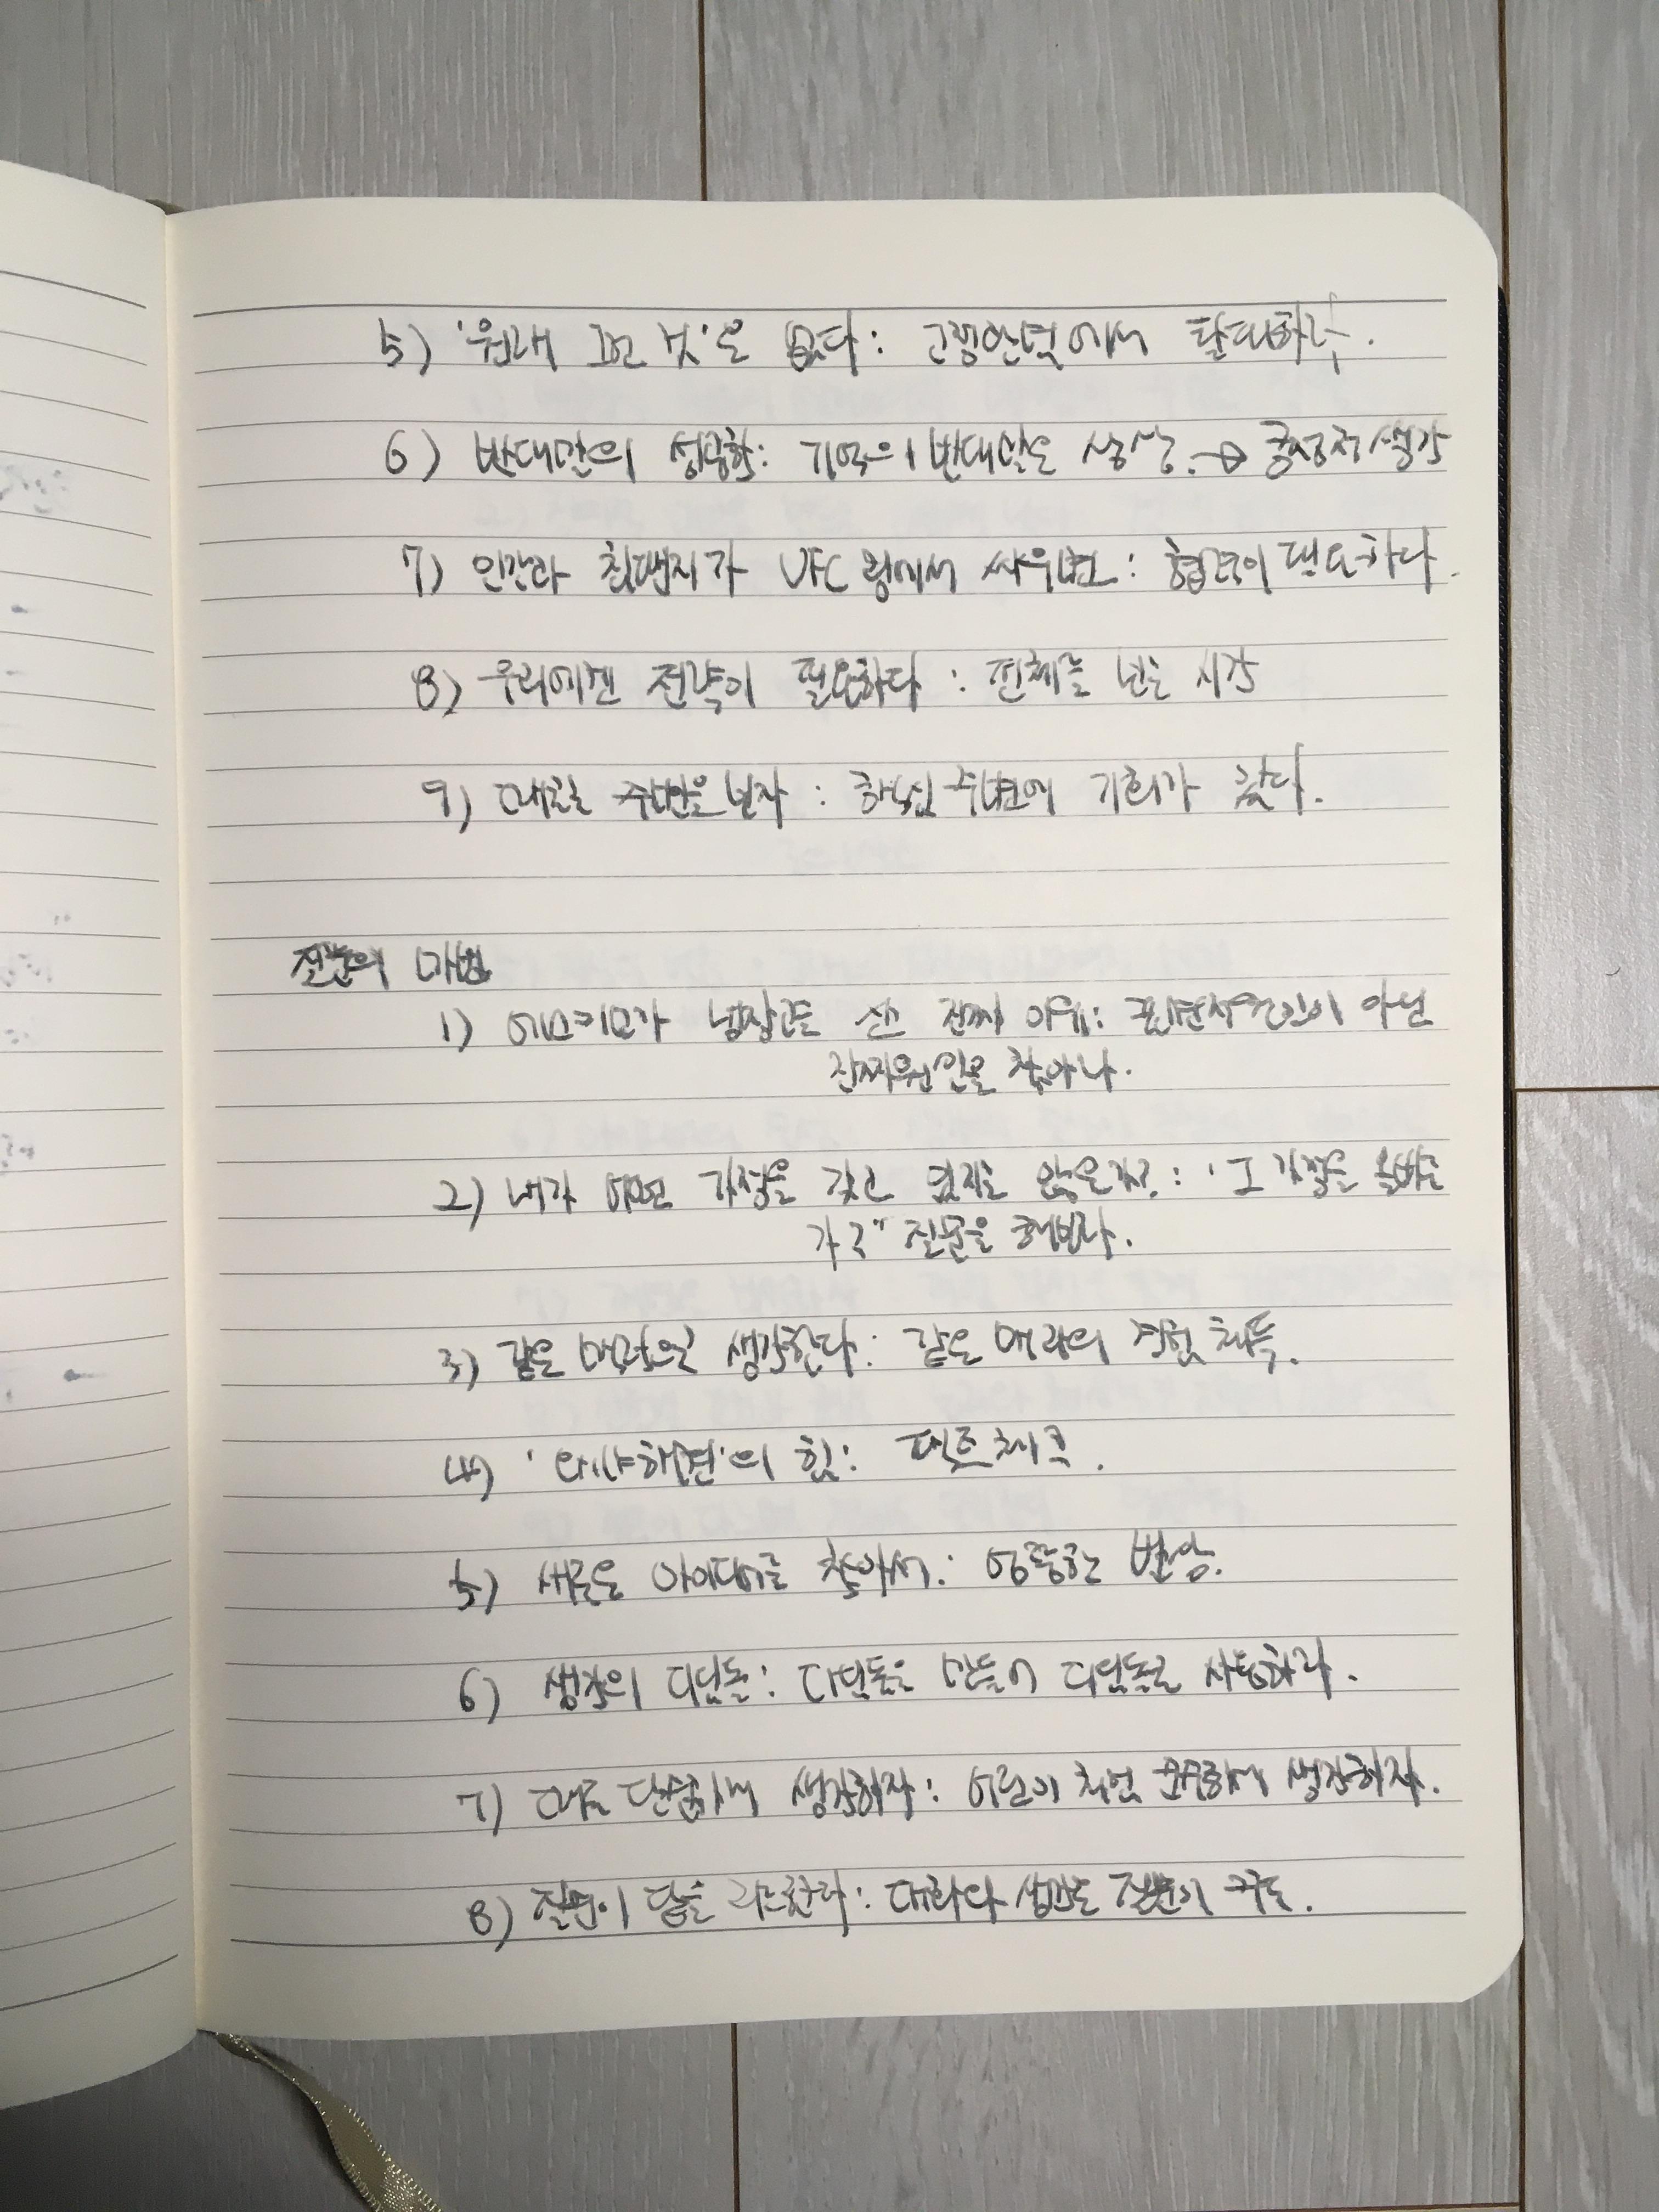 5) '원래 그런 것'은 없다: 고정관념에서 탈피하라.
6) 반대말의 성공학: 기억의 반대말은 상상. → 긍정적 생각
7) 인간과 침팬지가 UFC 링에서 싸우면: 협력이 필요하다.
8) 우리에겐 전략이 필요하다: 전체를 보는 시각
9) 때론 주변을 보자: 핵심 주변에 기회가 있다.
질문의 마법
1) 에스키모가 냉장고를 산 진짜 이유: 표면적 원인이 아닌
진짜 원인을 찾아나.
2) 내가 어떤 가정을 갖고 있지는 않은지?: '그 가정은 올바른
가?" 질문을 해보라.
3) 같은 맥락으로 생각한다: 같은 맥락의 경험 체득.
4) '왜냐하면'의 힘: 팩트체크.
5) 새로운 아이디어를 찾아서: 엉뚱한 발상.
6) 생각의 디딤돌: 디딤돌을 만들어 디딤돌로 사용하라.
7) 때로 단순하게 생각하자: 어린이처럼 순수하게 생각하자.
8) 질문이 답을 대화와 생각은 질문이 주도.